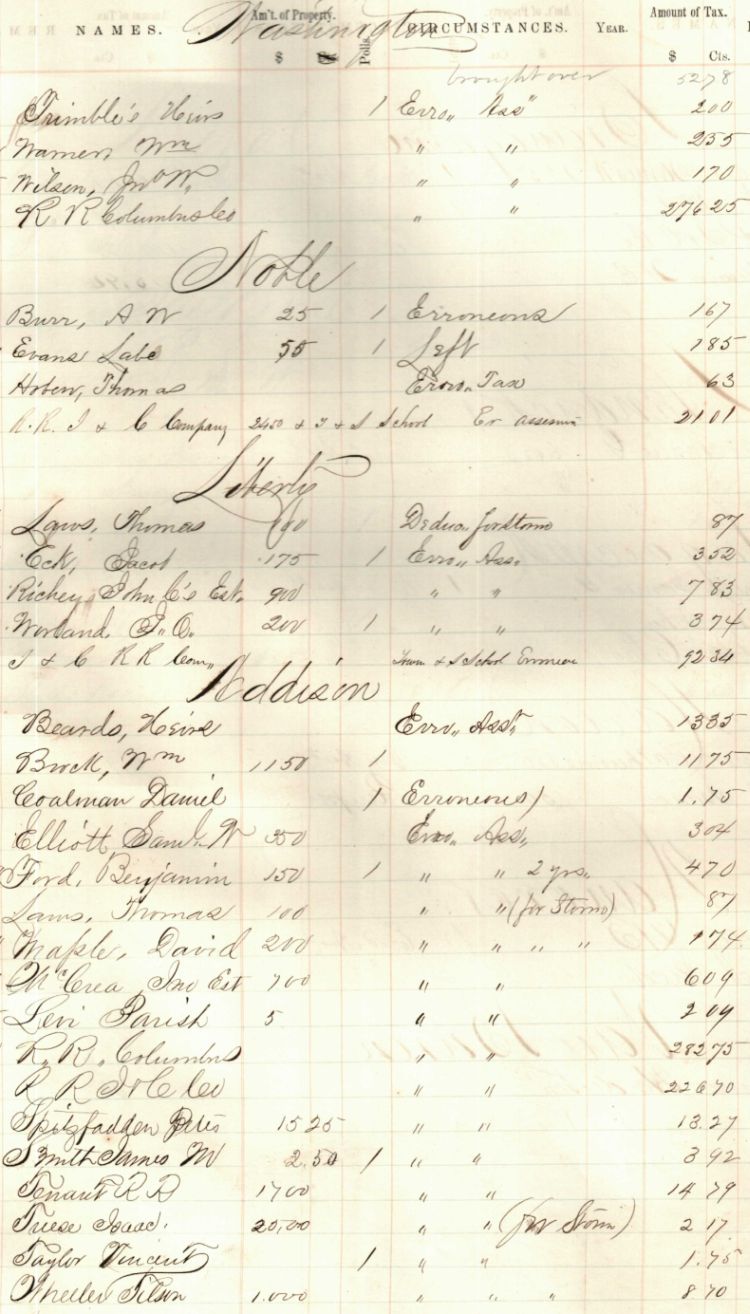 Washington
NAMES. Am't. of Property. $ Polls. CIRCUMSTANCES. YEAR. Amount of Tax. $ Cts.
brought over 5278
Trimble's Heirs 1 Erro,, Ass" 200
Warner, Wm " " 235
Wilson, Jno W. " " 170
R R Columbus Co " " 276 25
Noble
Burr, A W 25 1 Erroneous 167
Evans Labe 50 1 Left 185
Thomas Erro,, Tax 63
R. R. I & C Company 2450 & T & S School Er 2101
Liberty
Laws, Thomas 100 for Storm 87
Eck, Jacob 175 1 Erro,, Ass. 352
Richey John C's Est. 900 " " 783
Worland, P. O. 200 1 " " 374
I & C R R Com,, Town & S School 9234
Addison
Beards, Heirs Erro,, Asst. 1335
Brock, Wm 1150 1 1175
Coalman Daniel 1 Erroneous 1.75
Elliott Saml. W 350 Erro,, Ass,, 304
Ford, Benjamin 150 1 " " 2 yrs. 470
Laws, Thomas 100 " " (for Storm) 87
Maple, David 200 " " " " 174
McCrea Jno Est 700 " " 609
Levi Parish 5 " " 209
R. R. Columbus " " 28275
R R I & C Co " " 22670
Spitzfadden 1525 " " 13.27
Smith James M 2.50 1 " " 392
Tenant R R 1700 " " 1479
Isaac. 20,00 " " (for Storm) 217
Taylor Vincent 1 " " 1.75
Wheeler Tilson 1.000 " " " 870